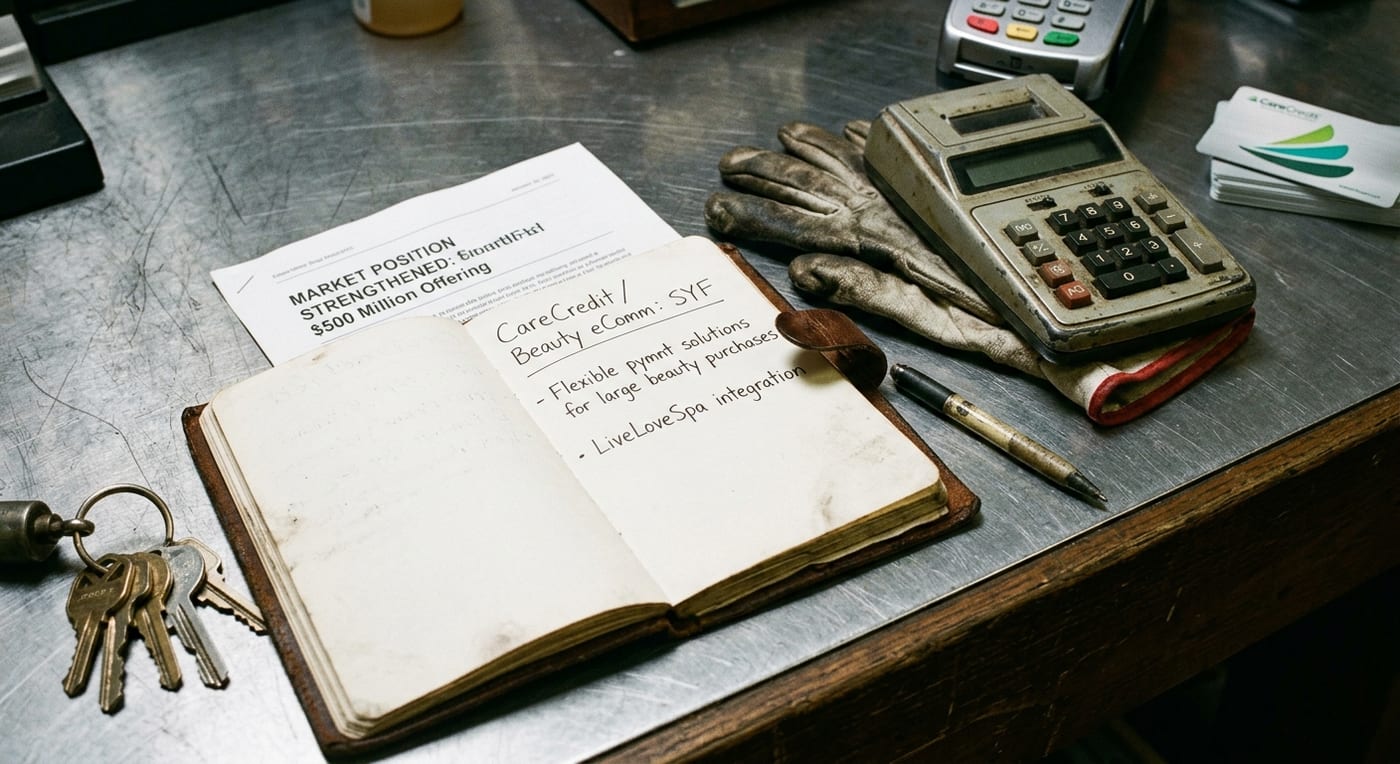 MARKET POSITION
STRENGTHENED:
$500 Million Offering
CareCredit /
Beauty eComm: SYF
- Flexible pymnt solutions
for large beauty purchases
• LiveLoveSpa integration
CareCredit
7 8 9
4 5 6
1 2 3
0